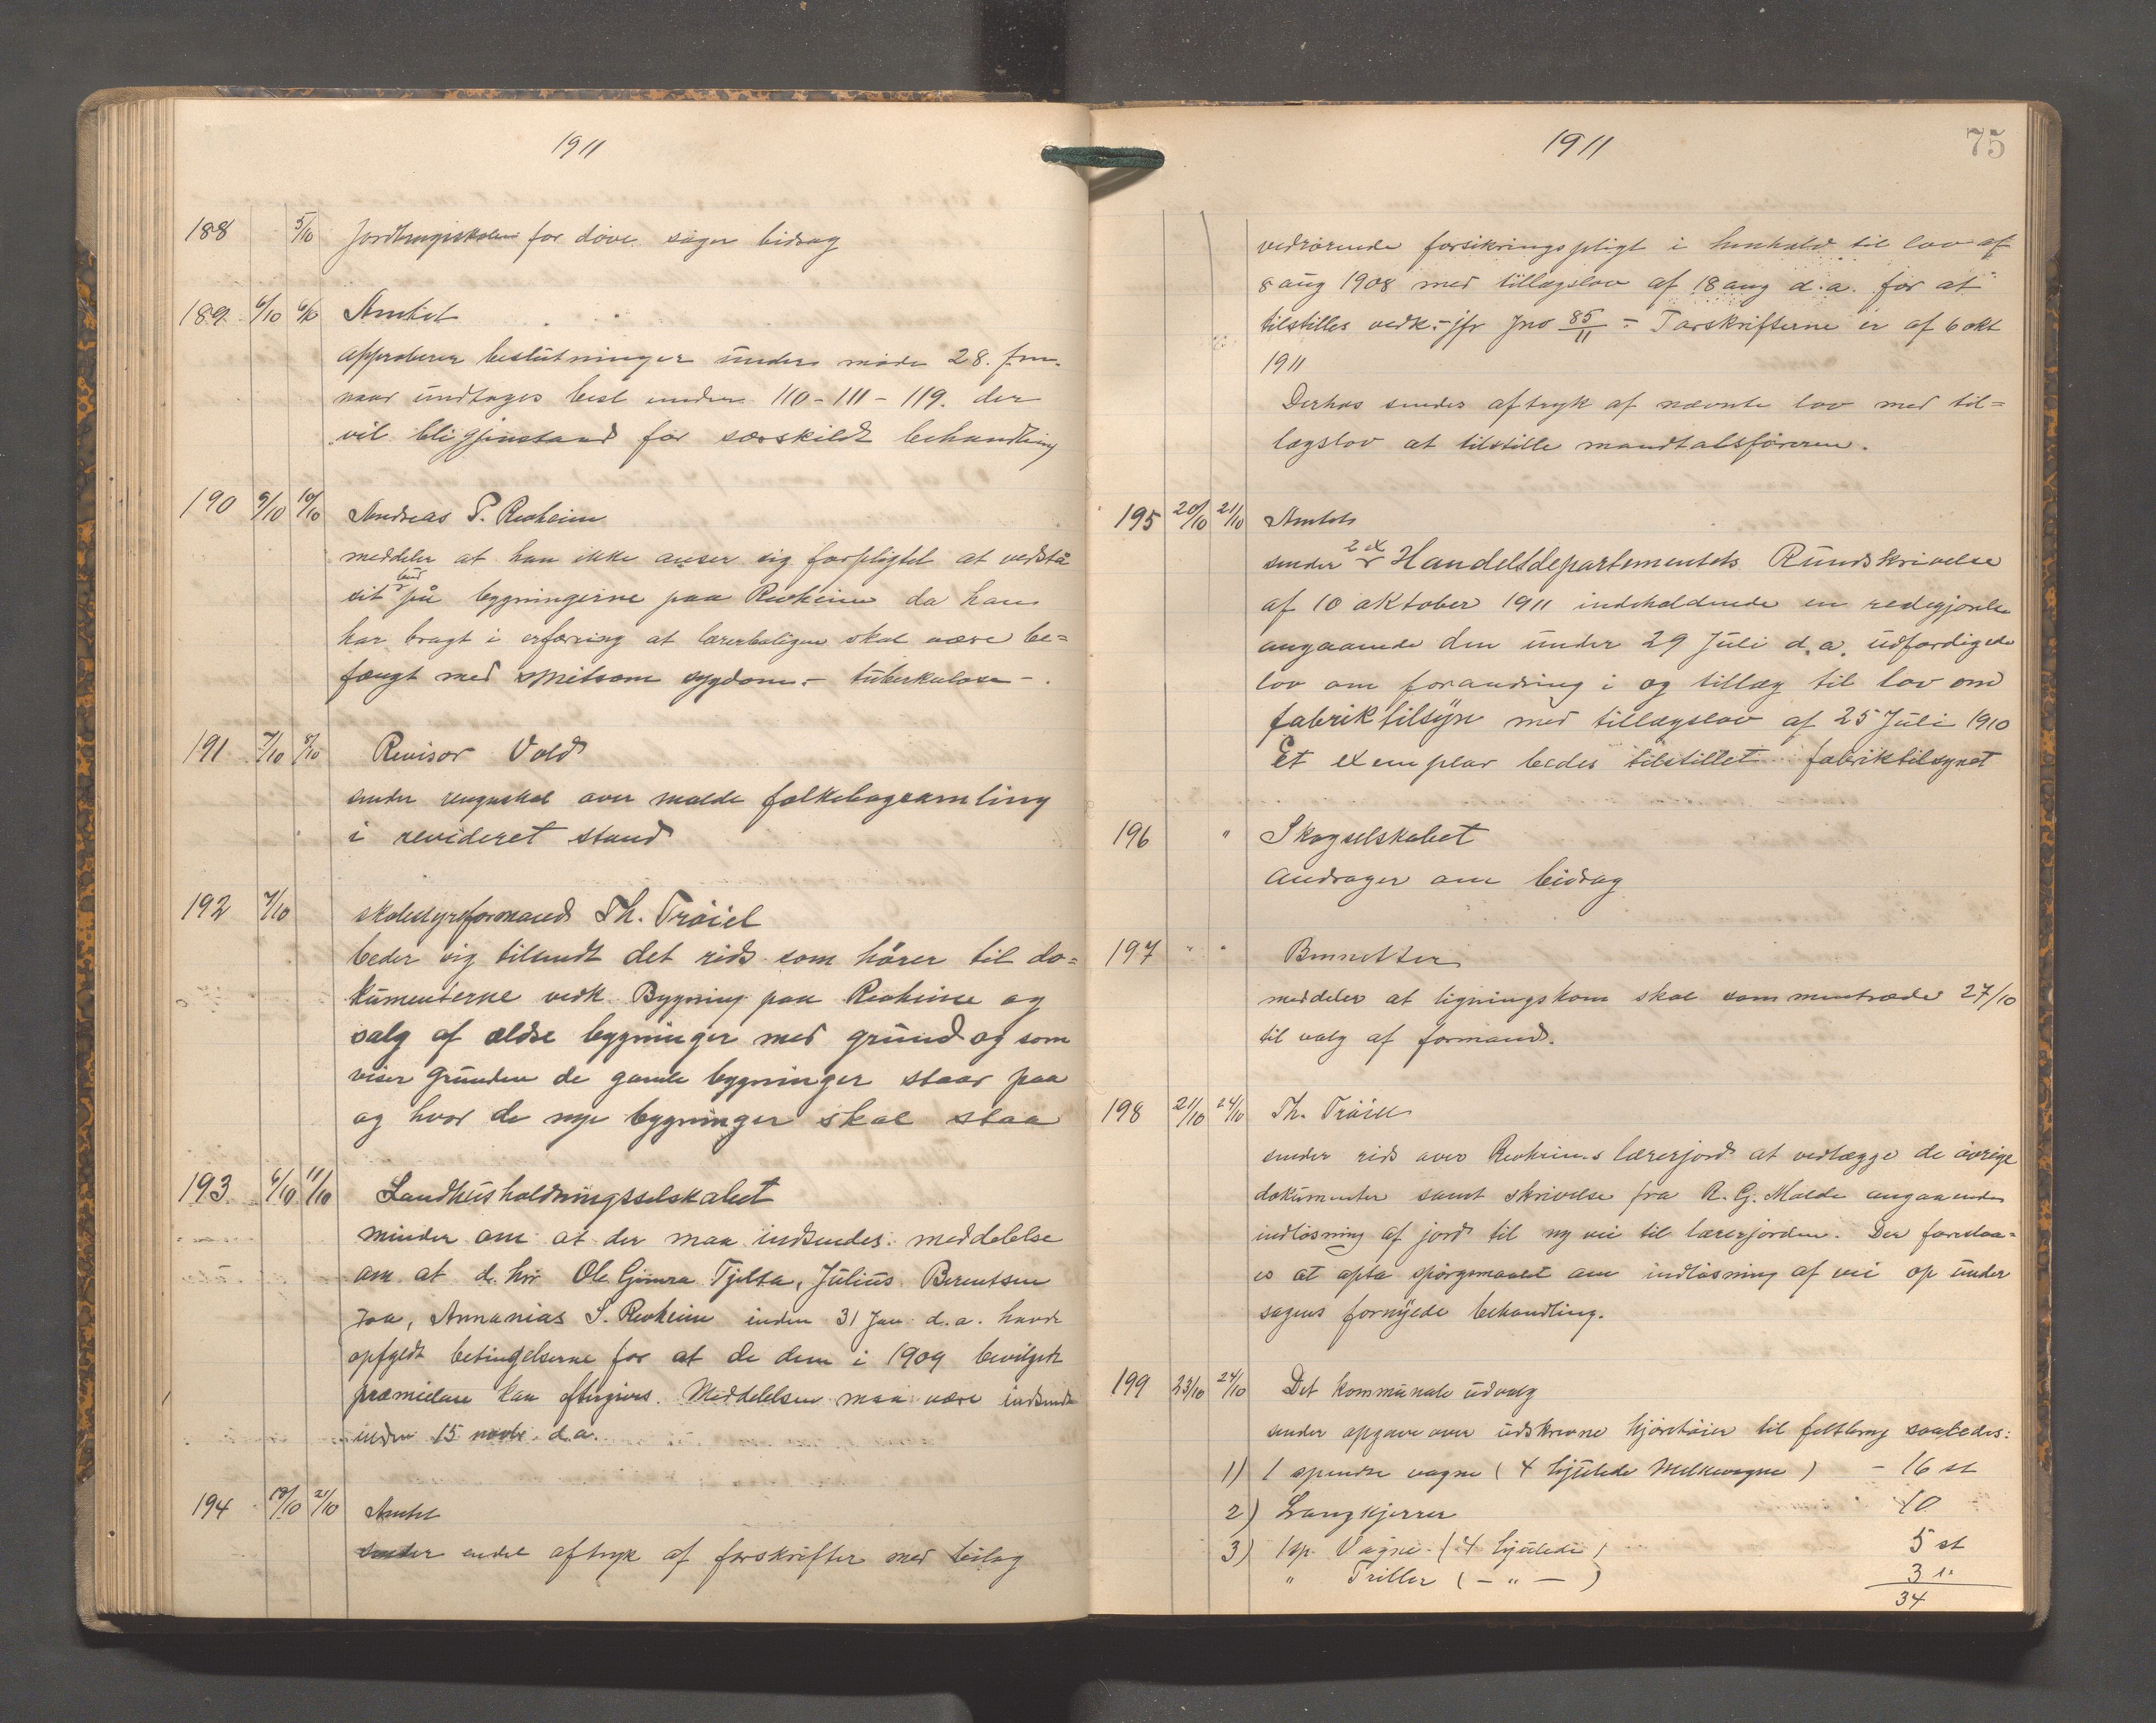 1911
188 5/10 Jordbrugsskolen for døve søger bidrag
189 6/10 6/10 Amtet
approberer beslutninger under møde 28. f.m.
naar undtages besl under 110 - 111 - 119. der
vil bli gjenstand for særskildt behandling
190 9/10 10/10 Andreas P. Revheim
meddeler at han ikke anser sig forpligtet at vedstå
sit bud på bygningerne paa Revheim da han
har bragt i erfaring at lærerboligen skal være be=
fængt med smitsom sygdom - tuberkulose -.
191 7/10 8/10 Revisor Vold
sender regnskab over malde folkebogsamling
i revideret stand
192 7/10 skolestyreformand Th. Trøiel
beder sig tilsendt det rids som hører til do=
kumenterne vedk. Bygning paa Revheim og
salg af ældre bygninger med grund og som
viser grunden de gamle bygninger staar paa
og hvor de nye bygninger skal staa
193 6/10 11/10 Landhusholdningsselskabet
minder om at der maa indsendes meddelelse
om at d. hrr Ole Gimra Tjelta, Julius Berentsen
Joa, Annanias S. Revheim inden 31 Jan d.a. havde
opfyldt betingelserne for at de dem i 1909 bevilgede
præmielaan kan eftergives. Meddelelsen maa være indsendt
inden 15 novbr. d.a.
194 19/10 21/10 Amtet
sender endel aftryk af forskrifter med bilag
1911
75
vedrørende forsikringspligt i henhold til lov af
8 aug 1908 med tillægslov af 18 aug d.a. for at
tilstilles vedk. - jfr Jno 85/11 - Forskrifterne er af 6 okt
1911
Derhos sendes aftryk af nævnte lov med til=
lægslov at tilstille mandtalsføreren.
195 20/10 21/10 Amtet
sender 2 ex Handelsdepartementets Rundskrivelse
af 10 oktober 1911 indeholdende en redegjørelse
angaaende den under 29 Juli d.a. udfærdigede
lov om forandring i og tillæg til lov om
fabriktilsyn med tillægslov af 25 Juli 1910
Et exemplar bedes tilstillet fabriktilsynet
196 " Skogselskabet
andrager om bidrag
197 " " Bennetter
meddeler at ligningskom skal sammentræde 27/10
til valg af formand.
198 21/10 24/10 Th. Trøiel
sender rids over Revheims lærerjord at vedlægge de øvrige
dokumenter samt skrivelse fra R. G. Malde angaaende
indløsning af jord til ny vei til lærerjorden. Der foreslaa=
es at opta spørgsmaalet om indløsning af vei op under
sagens fornyede behandling.
199 23/10 24/10 Det kommunale udvalg
sender opgave over udskrevne kjøretøier til feltbrug saaledes:
1) 1 spendte vogne (4 hjulede Melkevogne) - 16 st
2) Langkjerrer 10
3) 1 sp. Vogne (4 hjulede) 5 st
" Triller ( - " - ) 3 "
34